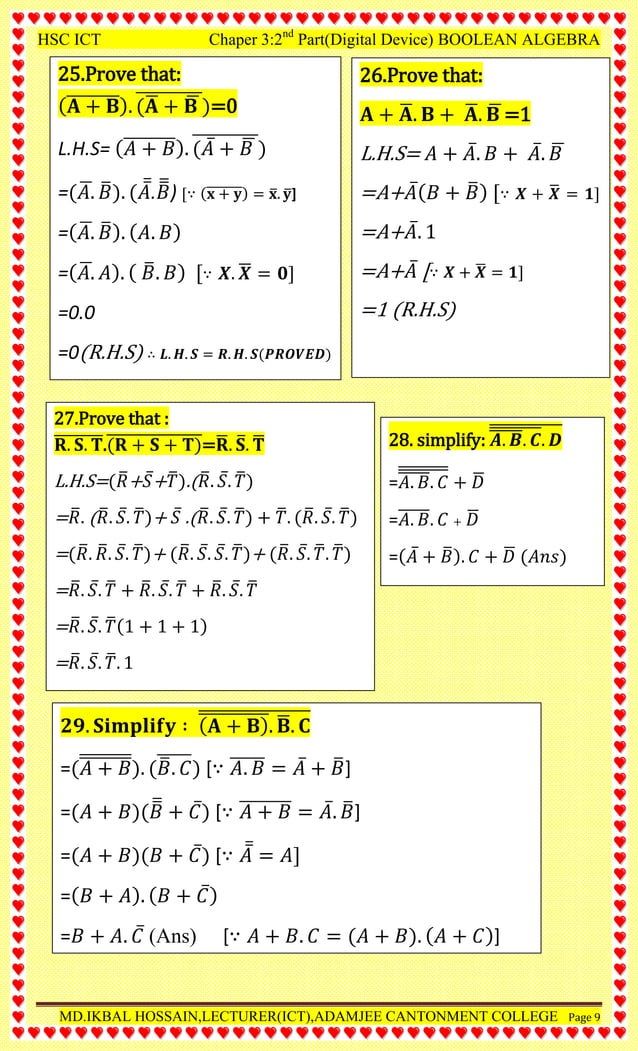 HSC ICT Chaper 3:2nd Part(Digital Device) BOOLEAN ALGEBRA
25.Prove that:
(A̅ ̅+̅ ̅B̅).(A̅̅ ̅+̅ ̅B̅̅)=0
L.H.S= (A̅ ̅+̅ ̅B̅).(A̅̅ ̅+̅ ̅B̅̅)
=(A̅.B̅).(A̅̅.B̅̅) [∵ (x̅ ̅+̅ ̅y̅) = x̅.y̅]
=(A̅.B̅).(A.B)
=(A̅.A).( B̅.B) [∵ X.X̅ = 0]
=0.0
=0(R.H.S) ∴ L.H.S = R.H.S(PROVED)
26.Prove that:
A + A̅.B + A̅.B̅ =1
L.H.S= A + A̅.B + A̅.B̅
=A+A̅(B + B̅) [∵ X + X̅ = 1]
=A+A̅.1
=A+A̅ [∵ X + X̅ = 1]
=1 (R.H.S)
27.Prove that :
R̅.̅S̅.̅T̅.(R̅ ̅+̅ ̅S̅ ̅+̅ ̅T̅)=R̅.S̅.T̅
L.H.S=(R̅+S̅+T̅).(R̅.S̅.T̅)
=R̅. (R̅.S̅.T̅)+S̅.(R̅.S̅.T̅) + T̅.(R̅.S̅.T̅)
=(R̅.R̅.S̅.T̅)+(R̅.S̅.S̅.T̅)+(R̅.S̅.T̅.T̅)
=R̅.S̅.T̅ + R̅.S̅.T̅ + R̅.S̅.T̅
=R̅.S̅.T̅(1 + 1 + 1)
=R̅.S̅.T̅.1
28. simplify: A̅̅̅.̅̅̅B̅̅̅.̅̅C̅̅.̅D̅
=A̅̅̅.̅̅̅B̅̅̅.̅̅C̅̅ + D̅
=A̅.̅B̅.C + D̅
=(A̅ + B̅).C + D̅ (Ans)
29. Simplify : (̅A̅̅ ̅̅+̅̅ ̅̅B̅̅)̅.̅B̅̅.̅C̅
=(A̅̅ ̅̅+̅̅ ̅̅B̅̅).(B̅̅.̅C̅) [∵ A̅.̅B̅ = A̅ + B̅]
=(A + B)(B̅̅ + C̅) [∵ A̅ ̅+̅ ̅B̅ = A̅.B̅]
=(A + B)(B + C̅) [∵ A̅̅ = A]
=(B + A).(B + C̅)
=B + A.C̅ (Ans) [∵ A + B.C = (A + B).(A + C)]
MD.IKBAL HOSSAIN,LECTURER(ICT),ADAMJEE CANTONMENT COLLEGE Page 9